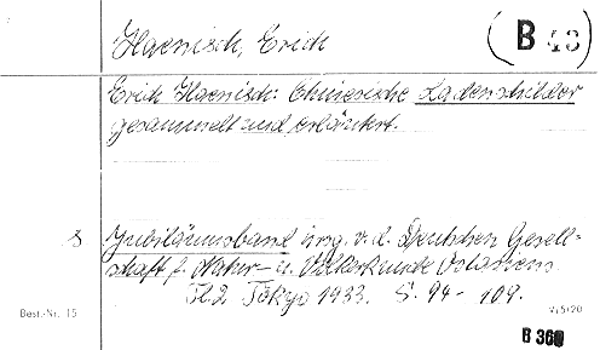 Haenisch, Erich
(B 43)
Erich Haenisch: Chinesische Ladenschilder
gesammelt und erläutert.
s Jubiläumsband hrsg. v. d. Deutschen Gesell-
schaft f. Natur- u. Völkerkunde Ostasiens.
Tl.2 Tokyo 1933. S. 94-109.
Best.-Nr. 15
B 360